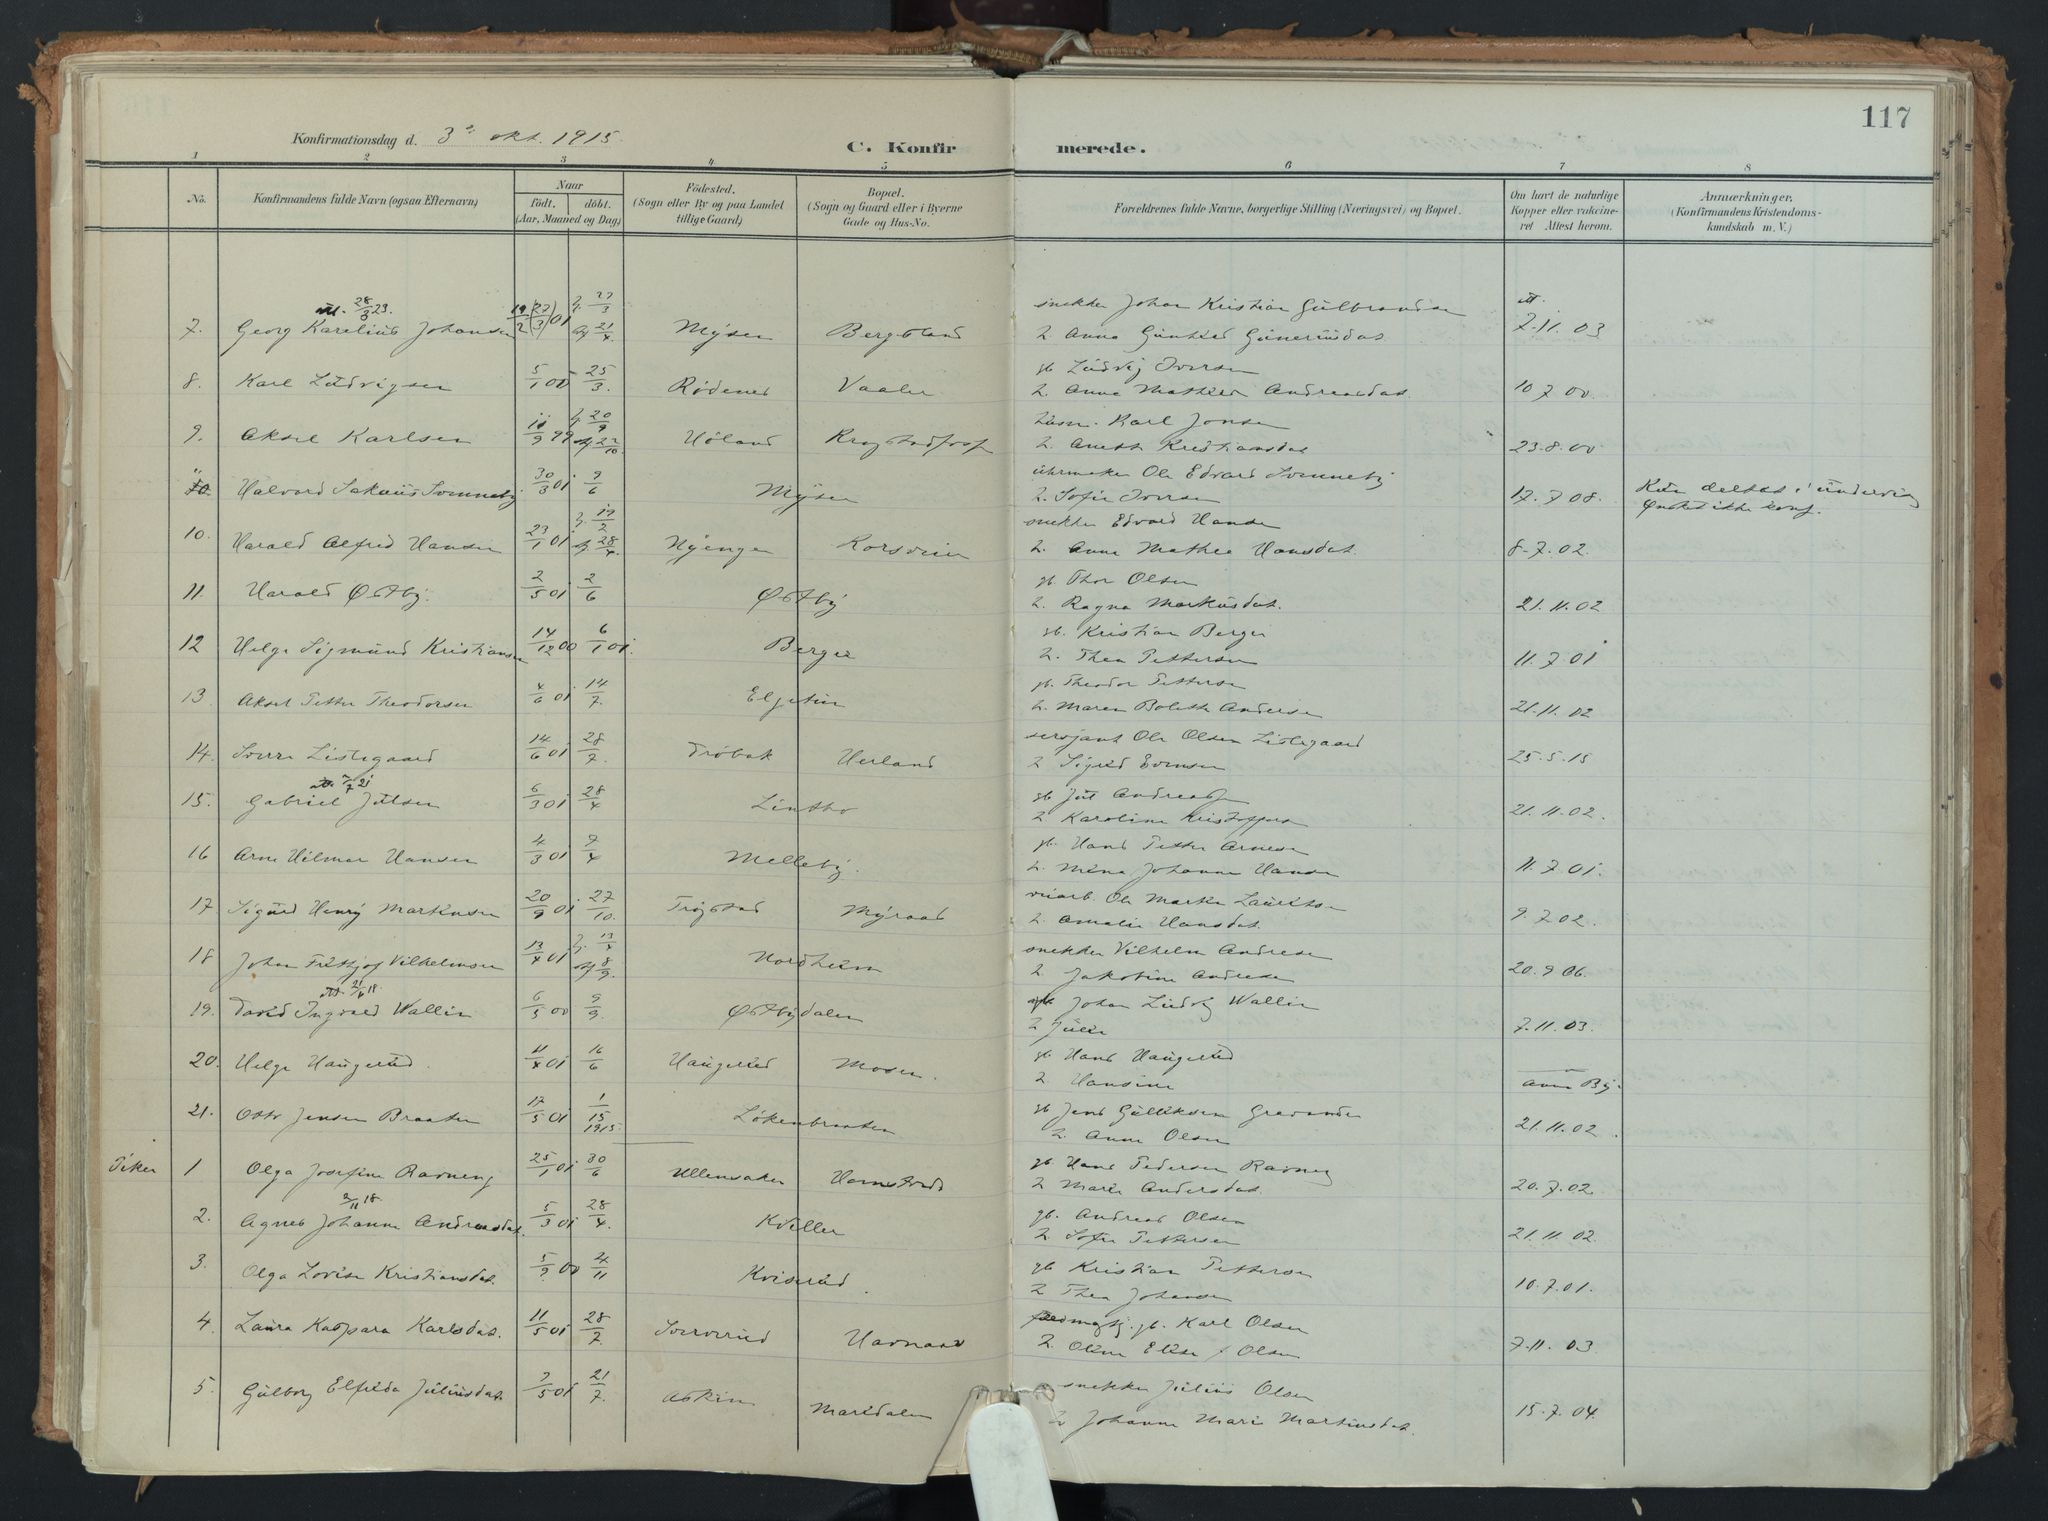 117
Konfirmationsdag d. 3' okt. 1915.
C. Konfirmerede.
1 2 3 4 5 6 7 8
No.
Konfirmandens fulde Navn (ogsaa Efternavn)
Naar
födt. döbt.
(Aar, Maaned og Dag)
Födested.
(Sogn eller By og paa Landet tillige Gaard)
Bopæl.
(Sogn og Gaard eller i Byerne Gade og Hus-No.
Forældrenes fulde Navne, borgerlige Stilling (Næringsvei) og Bopæl.
Om havt de naturlige Kopper eller vakcineret Attest herom.
Anmærkninger.
(Konfirmandens Kristendomskundskab m. V.)
7. Georg Karelius Johansen Mysen Bergsland snekker Johan Kristian Gulbrandsen 7.11.03
8. Karl Ludvigsen 5/1 00 25/3 Rødenes Vaaler gb Ludvig Iversen 10 7 00
2. Anne Mathea Andreasdat.
9. Aksel Karlsen Høland Karl Jonsen 23.8.00
2. Anette Kristiansdat
10 30/3 01 9/6 Mysen uhrmaker Ole Edvard 17.7 08.
2. Sofie Iversen
ønsket ikke konf.
10. Harald Alfred Hansen 23/1 01 Korsveien snekker Edvard Hansen 8-7.02.
2. Anne Mathea Hansdat.
11. Harald Østby. 2/5 01 2/6 Østby gb. Thor Olsen
2. Ragna Markusdat. 21.11.02
12 Helge Sigmund Kristiansen 14/12 00 6/1 01. Berger gb. Kristian Berger
2. Thea Pettersen 11.7 01
13. Aksel Petter Theodorsen 4/6 01 14/7 gb. Theodor Pettersen
2. Maren Bolette Andersen 21.11.02
14. Sverre Listegaard 14/6 01 28/7 Drøbak Herland sersjant Ole Olsen Listegaard
2 Sigrid Evensen 25-5-15
15. Gabriel Julsen 6/3 01 28/4 Lintho gb Jul Andreassen
2 Karoline Kristoffersen 21.11.02.
16 Arne Hilmar Hansen 4/3 01 7/4 Melleby. gb. Hans Petter Arnesen
2. Mina Johanne Hansen 11.7 01.
17. Sigurd Henry Markussen 20/9 01 27/10. Trøgstad Myraas Ole Markus Lauritsen
2. Amalie Hansdat. 9.7.02.
18 Johan Fritjof Vilhelmsen 13/4 01 Nordheim snekker Vilhelm Andresen
2. Jakobine Andresen 20.9 06.
19. David Ingvald Wallin 6/5 00 9/9. Østbydalen Johan Ludvig Wallin
2 Julie 7.11.03.
20. Helge Haugerud. 11/4 01 16/6 Haugerud Mosen. gb Hans Haugerud
2. Hansine
21. Otto Jensen Braaten 17/5 01 1/15 1915. Løkenbraaten gb Jens Gulliksen
2. Anne Olsen 21.11.02.
Piker 1 Olga Josefine Ravneng 25/1 01 30/6 Ullensaker gb. Hans Pedersen Ravneng
2 Marie Andersdat. 20.7.02.
2. Agnes Johanne Andreasdat. 5/3 01 28/4. Kviller gb. Andreas Olsen
2. Sofie Pettersen 21.11 02.
3. Olga Lovise Kristiansdat. 5/9 00 4/11 Kviserud. gb Kristian Pettersen
2 Thea Johansen 10.7.01.
4. Laura Kaspara Karlsdat. 11/5 01 28/7 Havnaas gb. Karl Olsen
2. Oline Elise Olsen 7-11.03.
5. Gulborg Elfrida Juliusdat. 7/5 01 21/7. Askim Maridalen snekker Julius Olsen
2 Johanne Marie Martinsdat. 15.7.04.